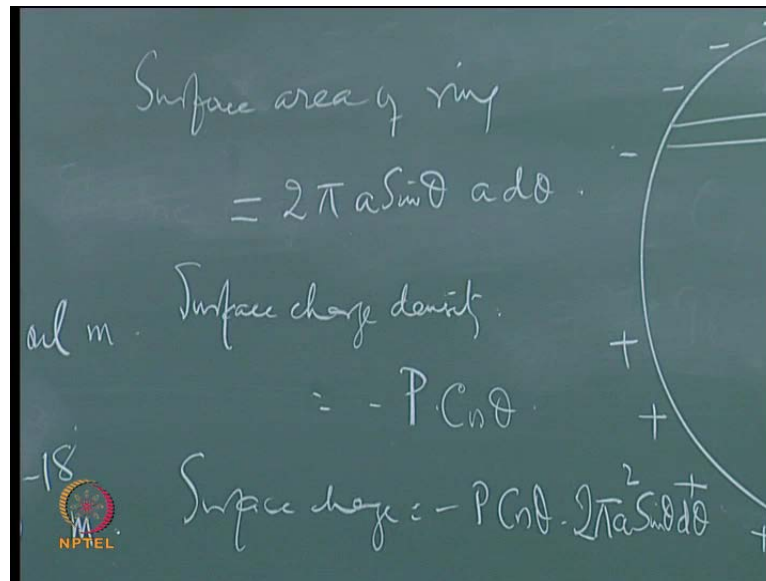 Surface area of ring
= 2π a Sinθ a dθ.
oul m. Surface charge density.
= - P. Cosθ.
-18
m.
Surface charge = - P Cosθ. 2πa² Sinθ dθ
NPTEL